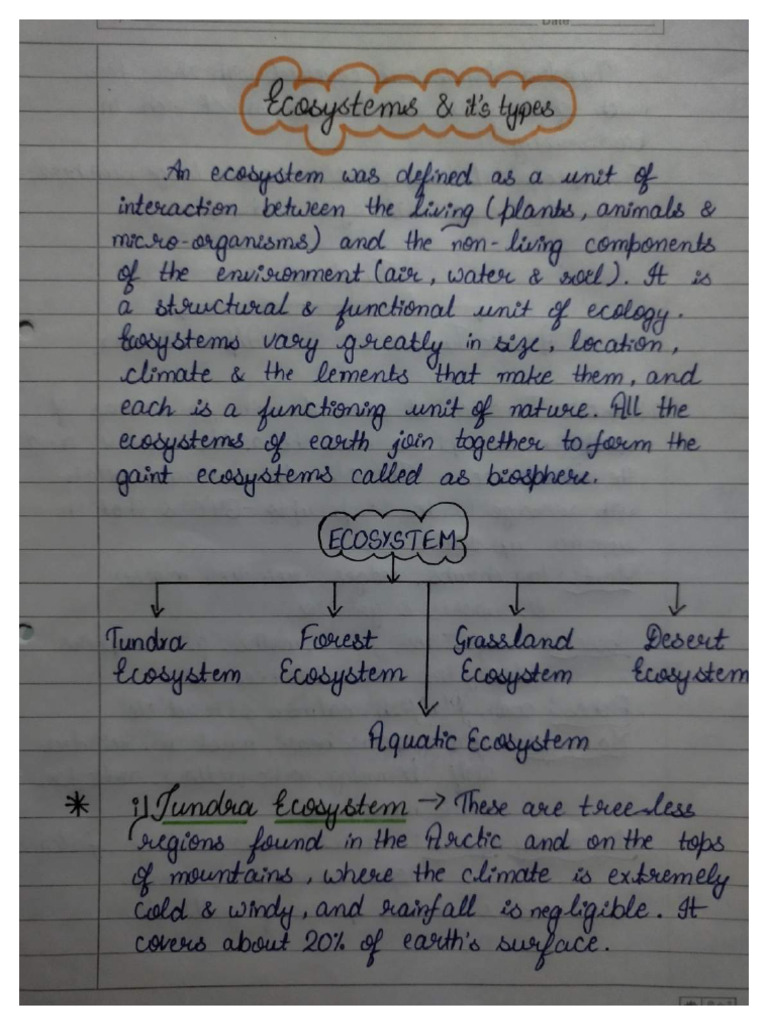 Date
Ecosystems & it's types
An ecosystem was defined as a unit of
interaction between the living (plants, animals &
micro-organisms) and the non-living components
of the environment (air, water & soel). It is
a structural & functional unit of ecology.
Ecosystems vary greatly in size, location,
climate & the lements that make them, and
each is a functioning unit of nature. All the
ecosystems of earth join together to form the
gaint ecosystems called as biosphere.
ECOSYSTEM
Tundra Ecosystem
Forest Ecosystem
Grassland Ecosystem
Desert Ecosystem
Aquatic Ecosystem
* i) Tundra Ecosystem → These are tree-less
regions found in the Arctic and on the tops
of mountains, where the climate is extremely
cold & windy, and rainfall is negligible. It
covers about 20% of earth's surface.